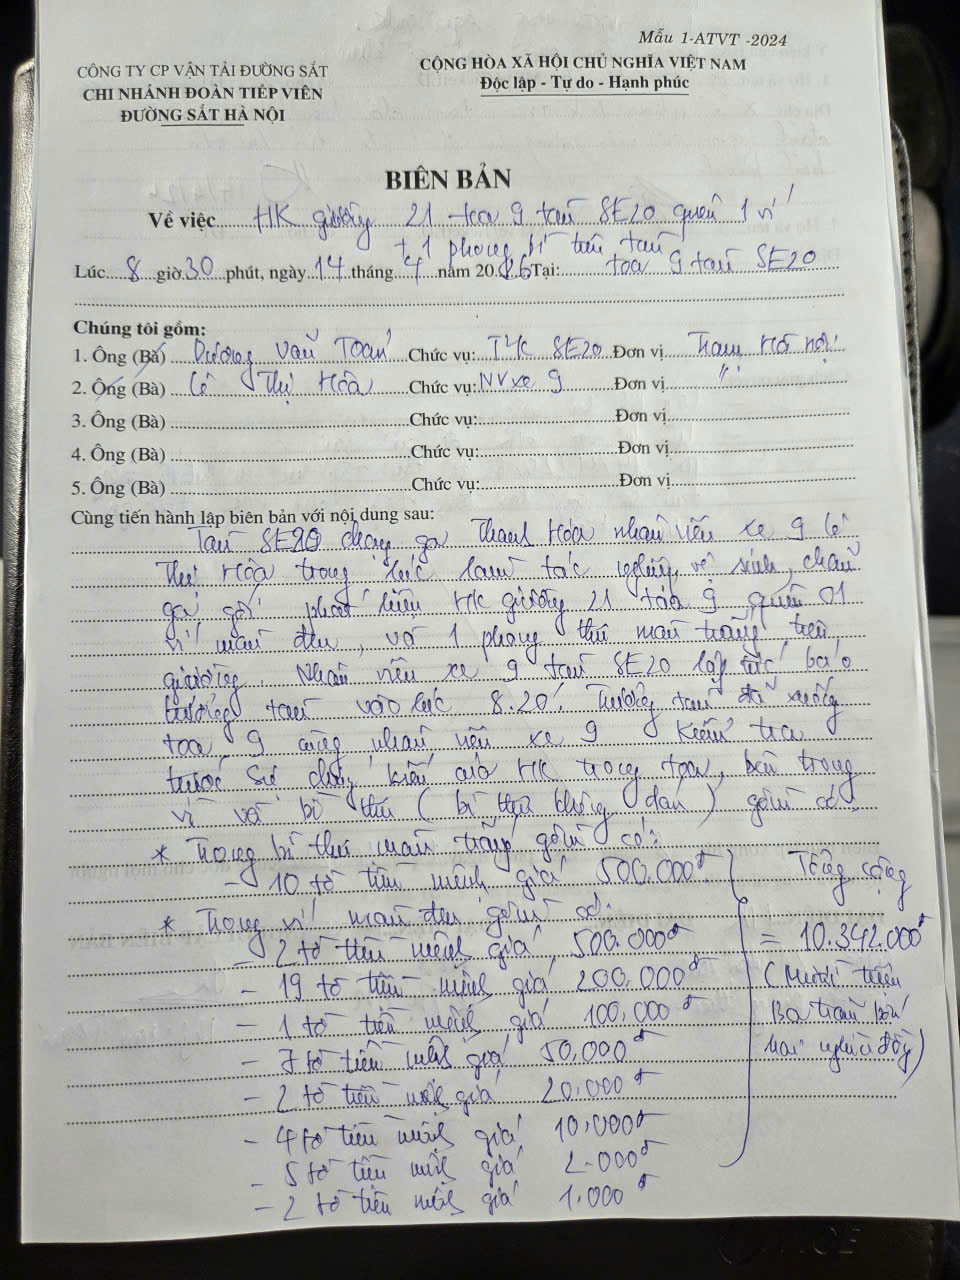 Mẫu 1-ATVT -2024
CÔNG TY CP VẬN TẢI ĐƯỜNG SẮT
CHI NHÁNH ĐOÀN TIẾP VIÊN
ĐƯỜNG SẮT HÀ NỘI
CỘNG HÒA XÃ HỘI CHỦ NGHĨA VIỆT NAM
Độc lập - Tự do - Hạnh phúc
BIÊN BẢN
Về việc HK giường 21 toa 9 tàu SE20 quên 1 ví
+ 1 phong bì tiền tàu
Lúc 8 giờ 30 phút, ngày 14 tháng 4 năm 2026 Tại: toa 9 tàu SE20
Chúng tôi gồm:
1. Ông (Bà) Dương Văn Toán Chức vụ: TK SE20 Đơn vị Trạm Hà Nội
2. Ông (Bà) Lê Thị Hòa Chức vụ: NV xe 9 Đơn vị "
3. Ông (Bà) Chức vụ: Đơn vị
4. Ông (Bà) Chức vụ: Đơn vị
5. Ông (Bà) Chức vụ: Đơn vị
Cùng tiến hành lập biên bản với nội dung sau:
Tàu SE20 chạy ga Thanh Hóa nhân viên xe 9 Lê
Thị Hòa trong lúc làm tác nghiệp vệ sinh, chăn
ga gối phát hiện HK giường 21 toa 9 quên 01
ví màu đen, và 1 phong thư màu trắng trên
giường. Nhân viên xe 9 tàu SE20 lập tức báo
trưởng tàu vào lúc 8.20'. Trưởng tàu đã xuống
toa 9 cùng nhân viên xe 9 kiểm tra
trước sự chứng kiến của HK trong toa, bên trong
ví và bì thư (bì thư không dán) gồm có.
* Trong bì thư màu trắng gồm có:
- 10 tờ tiền mệnh giá 500.000đ
Tổng cộng
* Trong ví màu đen gồm có:
- 2 tờ tiền mệnh giá 500.000đ
= 10.342.000đ
- 19 tờ tiền mệnh giá 200.000đ
(Mười triệu
- 1 tờ tiền mệnh giá 100.000đ
Ba trăm bốn
- 7 tờ tiền mệnh giá 50.000đ
hai nghìn đồng)
- 2 tờ tiền mệnh giá 20.000đ
- 4 tờ tiền mệnh giá 10.000đ
- 5 tờ tiền mệnh giá 2.000đ
- 2 tờ tiền mệnh giá 1.000đ